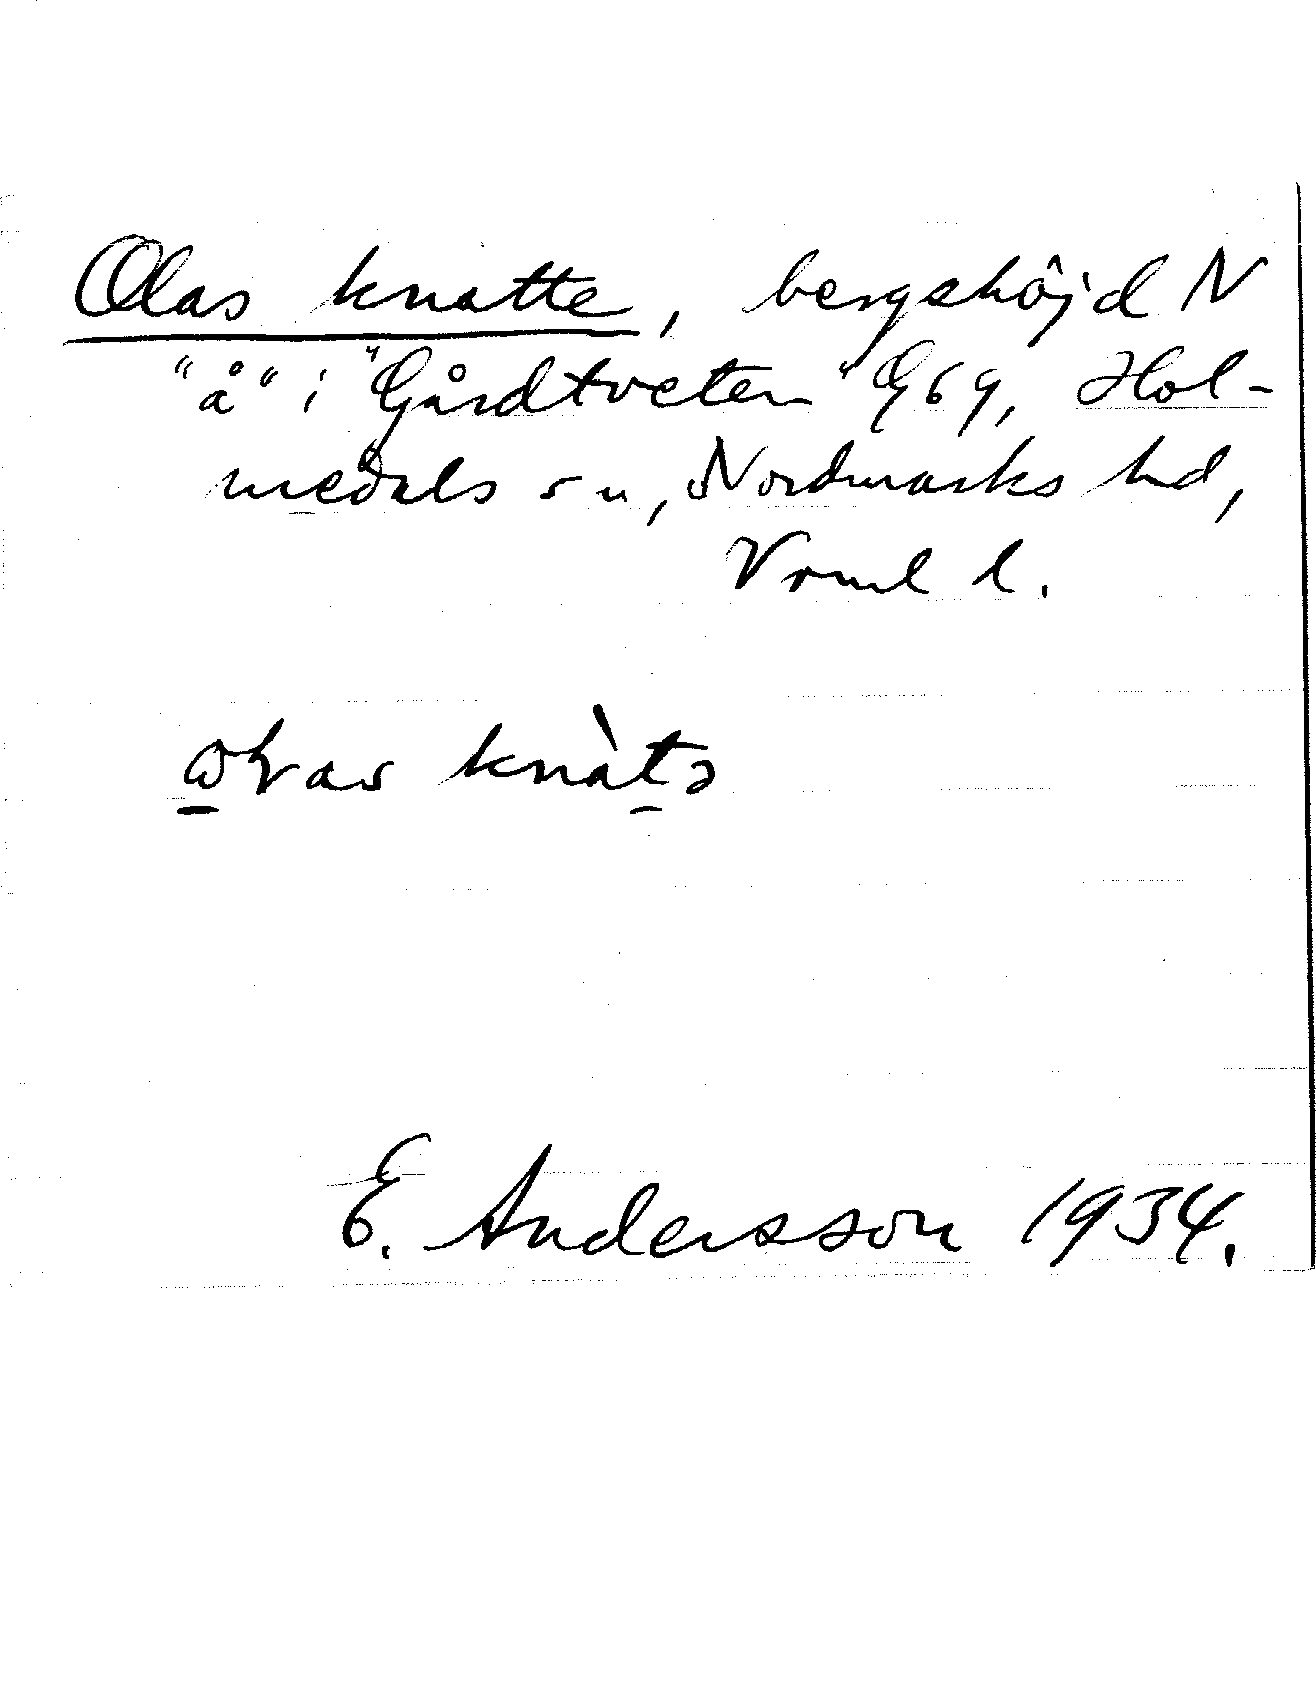 Olas knatte, bergshöjd N
"å" i "Gårdtveten" Eg 69, Hol-
medals sn, Nordmarks hd,
Vrml l.
knàtə
E. Andersson 1934.